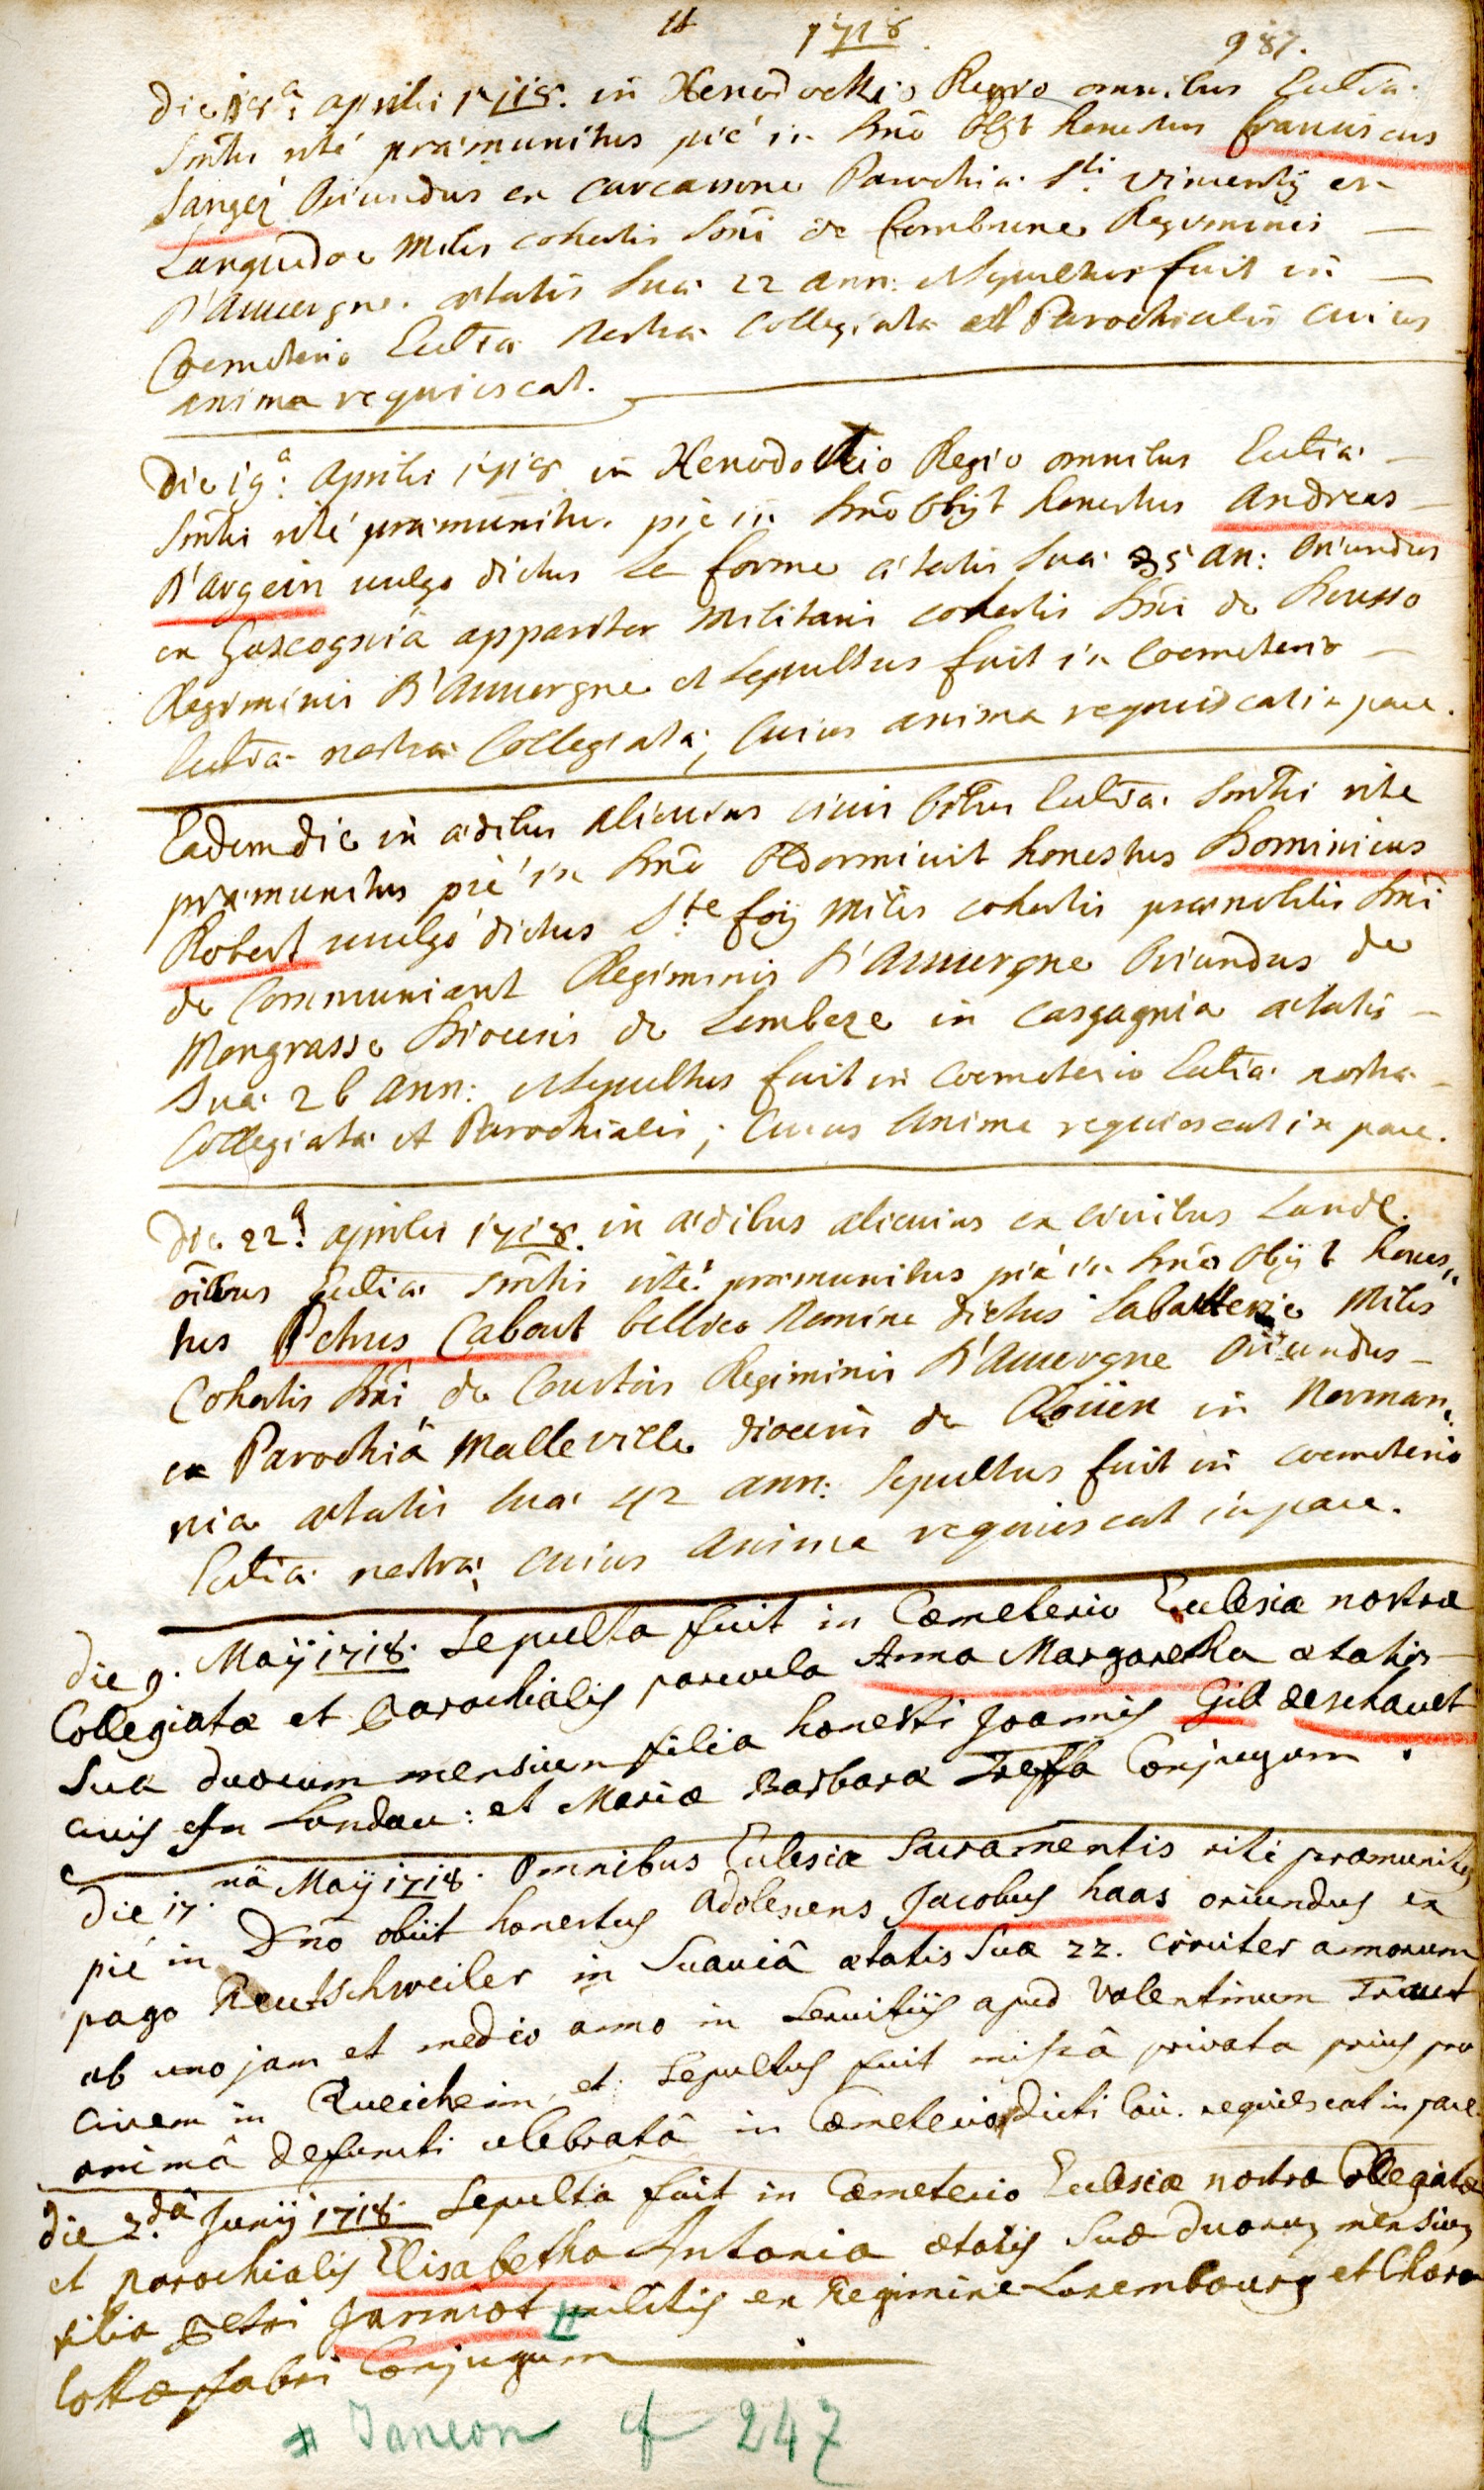 †† 1718. 987.
Die 18ª: aprilis 1718. in Xenodochio Regio omnibus Ecclia:
Smtis rité præmunitus pié in Dno Obijt honestus franciscus
Sangez Oriundus ex carcassone Parochia Sti: Vincentij en
Languedoc Miles cohortis Dni de Combrune Regiminis —
D'Auuergne. ætatis suæ 22 ann: et sepultus fuit in —
Coemeterio Ecclia nostræ Collegiatæ et Parochialis cuius
anima requiescat.
Die 19ª: Aprilis 1718 in Xenodochio Regio omnibus Ecclia: —
Smtis rité præmunitus pié in Dno Obijt honestus Andreas —
D'argein uulgo dictus Le forme ætatis suæ 35 an: Oriundus
ex Gascogniâ apparitor militaris cohortis Dni de Rousso
Regiminis D'Auuergne et sepultus fuit in Coemeterio —
Ecclia nostræ Collegiatæ, Cuius anima requiescat in pace.
Eadem die in ædibus alicuius ciuis oibus Ecclia: Smtis rite
præmunitus pié in Dno Obdormiuit honestus Dominicus
Robert uulgó dictus Ste foy Miles cohortis prænobilis Dni
de Communiant Regiminis D'Auuergne Oriundus de
Mongrasse Diocesis de Lombeze in casgagnia ætatis —
Suæ 26 ann: et sepultus fuit in coemeterio Ecclia: nostræ —
Collegiatæ et Parochialis; Cuius Anima requiescat in pace.
Die 22ª: aprilis 1718. in ædibus alicuius ex ciuibus Land.
oibus Ecclia: Smtis rité præmunitus pié in Dno Obijt hones„
tus Petrus Cabout bellico Nomine dictus Labatterie Miles
Cohortis Dni de Courtois Regiminis D'Auuergne Oriundus —
ex Parochiâ Malleville diocesis de Roüen in Norman„
nia ætatis suæ 42 ann: sepultus fuit in coemeterio
Ecclia: nostræ, cuius Anima requiescat in pace.
die 9. Maij 1718. Sepulta fuit in Cæmeterio Ecclesiæ nostræ
Collegiatæ et Parochialis parvula Anna Margaretha ætatis
Suæ duorum mensium filia honesti Joannis Gill deschauet
civis in Landau: et Mariæ Barbaræ Treffa Conjugum.
die 17.nâ Maij 1718. Omnibus Eclesiæ Sacramentis rité præmunitus
pié in Dno obiit honestus adolescens Jacobus haas oriundus ex
pago Reutschweiler in Suaviâ ætatis Suæ 22. circiter annorum
ab uno jam et medio anno in Servitijs apud Valentinum Traut
civem in Queicheim, et Sepultus fuit missâ privata prius pro
animâ defuncti celebratâ in Cæmeterio dicti loci. requiescat in pace
die 2.dâ Junij 1718. Sepulta fuit in Cæmeterio Eclesiæ nostræ Collegiatæ
et parochialis Elisabetha Antonia ætatis Suæ duorum mensium
filia Petri Janniot †† militis ex Regimine Luxembourg et Char„
lottæ fabri Conjugum
†† Janeon cf 247